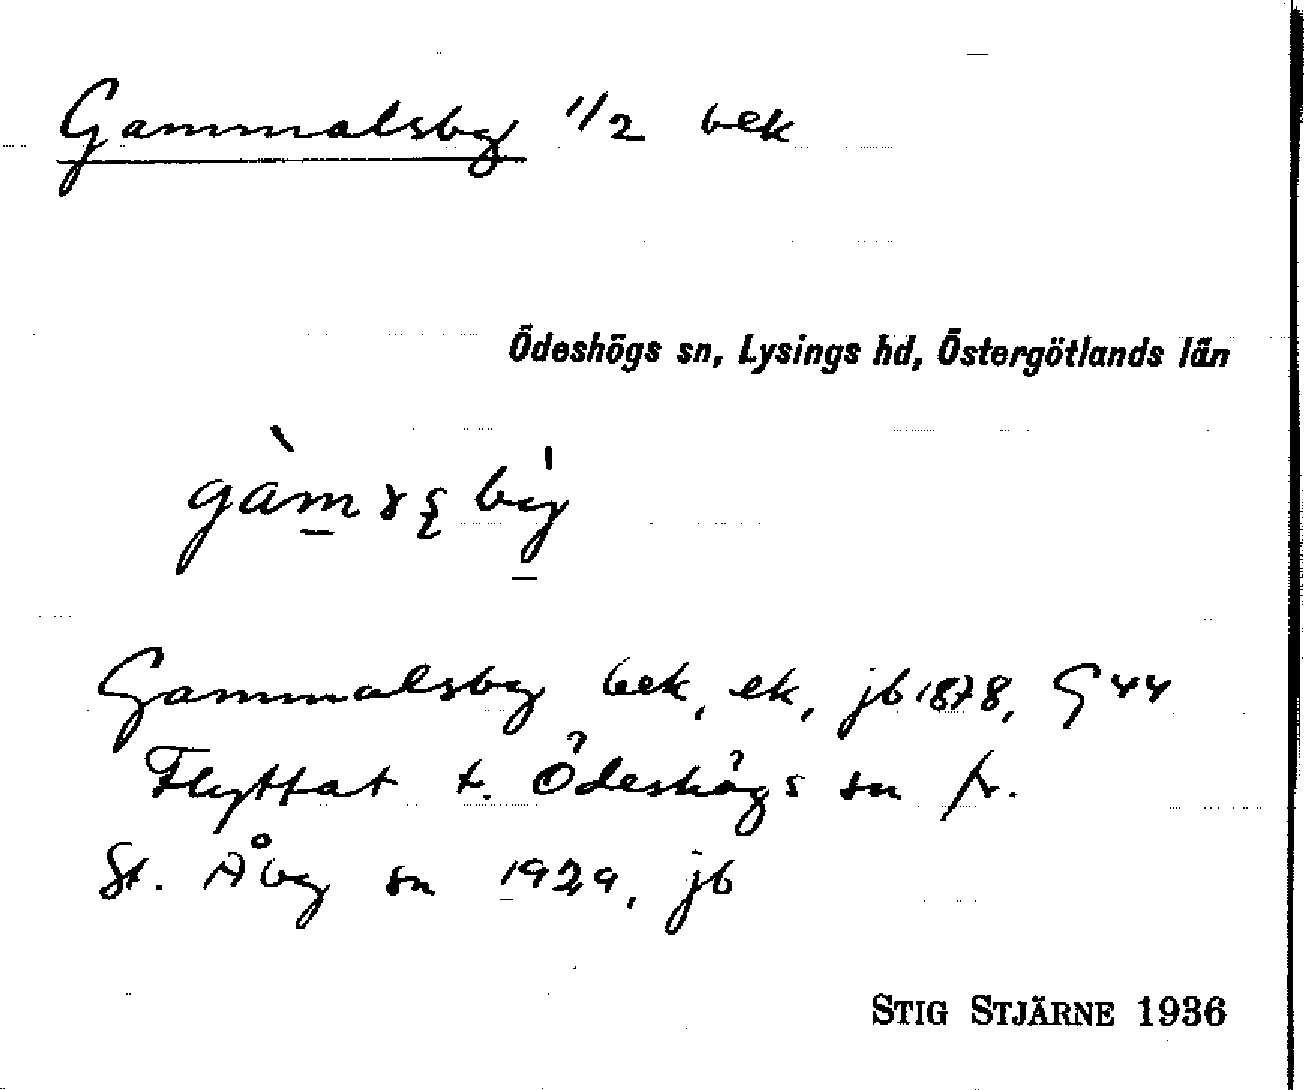 Gammalsby 1/2 bek
Ödeshögs sn, Lysings hd, Östergötlands län
Gammalsby bek, ek, jb 1878, G 44
Flyttat t. Ödeshögs sn fr.
St. Åby sn 1929, jb
STIG STJÄRNE 1936